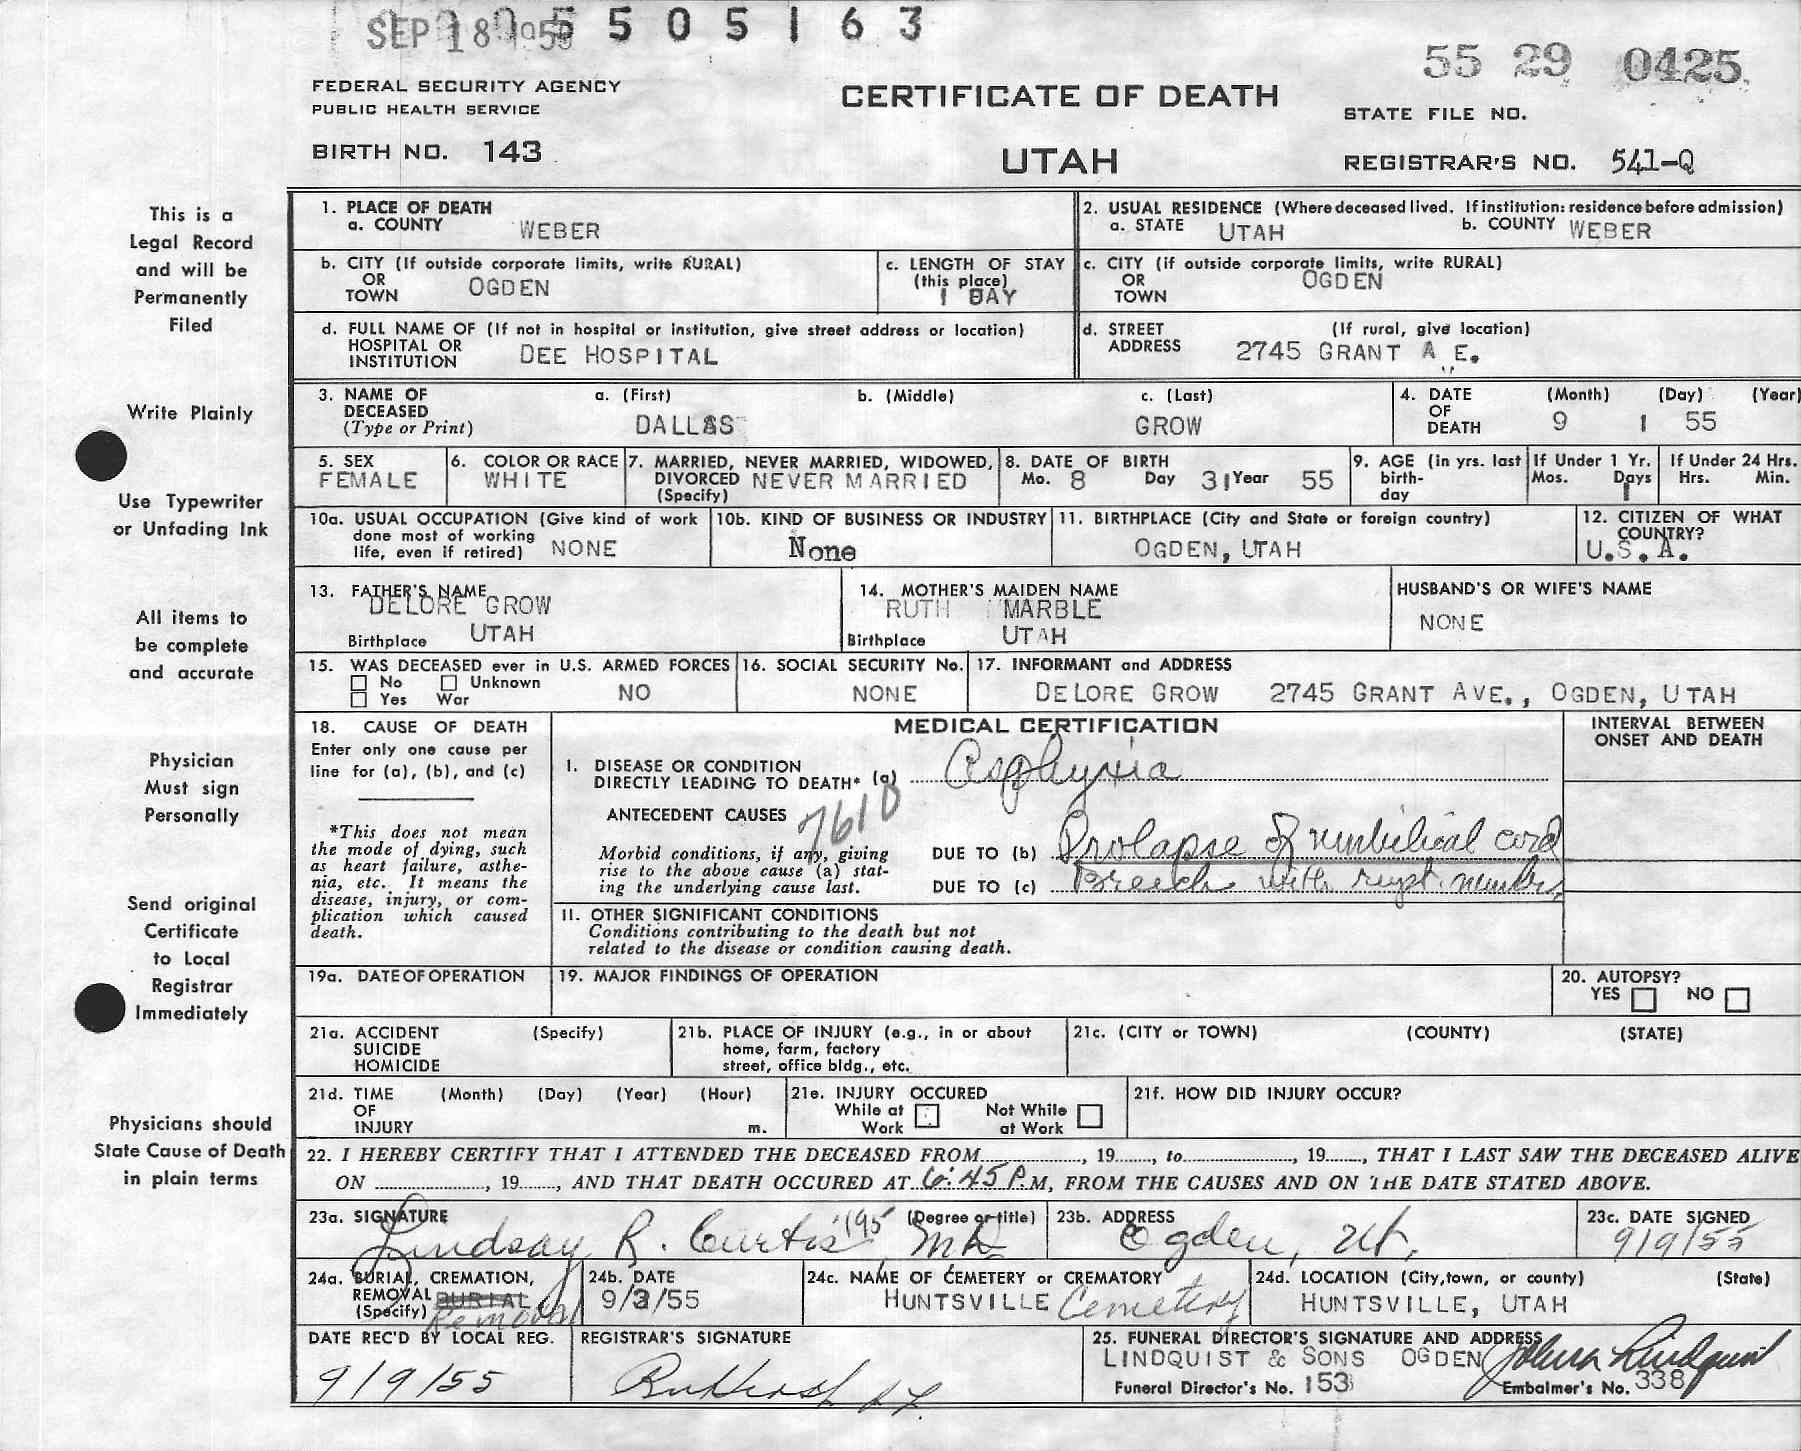 SEP 18 1955 5 5 0 5 1 6 3
55 29 0425
FEDERAL SECURITY AGENCY
PUBLIC HEALTH SERVICE
BIRTH NO. 143
CERTIFICATE OF DEATH
UTAH
STATE FILE NO.
REGISTRAR'S NO. 541-Q
This is a
Legal Record
and will be
Permanently
Filed
Write Plainly
Use Typewriter
or Unfading Ink
All items to
be complete
and accurate
Physician
Must sign
Personally
Send original
Certificate
to Local
Registrar
Immediately
Physicians should
State Cause of Death
in plain terms
1. PLACE OF DEATH
a. COUNTY WEBER
2. USUAL RESIDENCE (Where deceased lived. If institution: residence before admission)
a. STATE UTAH b. COUNTY WEBER
b. CITY (If outside corporate limits, write RURAL)
OR
TOWN OGDEN
c. LENGTH OF STAY
(this place)
1 DAY
c. CITY (if outside corporate limits, write RURAL)
OR
TOWN OGDEN
d. FULL NAME OF (If not in hospital or institution, give street address or location)
HOSPITAL OR
INSTITUTION DEE HOSPITAL
d. STREET (If rural, give location)
ADDRESS 2745 GRANT A E.
3. NAME OF a. (First) b. (Middle) c. (Last)
DECEASED
(Type or Print) DALLAS GROW
4. DATE (Month) (Day) (Year)
OF
DEATH 9 1 55
5. SEX
FEMALE
6. COLOR OR RACE
WHITE
7. MARRIED, NEVER MARRIED, WIDOWED,
DIVORCED NEVER MARRIED
(Specify)
8. DATE OF BIRTH
Mo. 8 Day 31 Year 55
9. AGE (in yrs. last
birth-
day
If Under 1 Yr.
Mos. Days
1
If Under 24 Hrs.
Hrs. Min.
10a. USUAL OCCUPATION (Give kind of work
done most of working
life, even if retired) NONE
10b. KIND OF BUSINESS OR INDUSTRY
None
11. BIRTHPLACE (City and State or foreign country)
OGDEN, UTAH
12. CITIZEN OF WHAT
COUNTRY?
U.S.A.
13. FATHER'S NAME
DELORE GROW
Birthplace UTAH
14. MOTHER'S MAIDEN NAME
RUTH MARBLE
Birthplace UTAH
HUSBAND'S OR WIFE'S NAME
NONE
15. WAS DECEASED ever in U.S. ARMED FORCES
No Unknown
Yes War NO
16. SOCIAL SECURITY No.
NONE
17. INFORMANT and ADDRESS
DELORE GROW 2745 GRANT AVE., OGDEN, UTAH
18. CAUSE OF DEATH
Enter only one cause per
line for (a), (b), and (c)
*This does not mean
the mode of dying, such
as heart failure, asthe-
nia, etc. It means the
disease, injury, or com-
plication which caused
death.
MEDICAL CERTIFICATION
INTERVAL BETWEEN
ONSET AND DEATH
I. DISEASE OR CONDITION
DIRECTLY LEADING TO DEATH* (a) Asphyxia
ANTECEDENT CAUSES 7610
Morbid conditions, if any, giving
rise to the above cause (a) stat-
ing the underlying cause last.
DUE TO (b) Prolapse of umbilical cord
DUE TO (c) Breech with rupt. membr.
II. OTHER SIGNIFICANT CONDITIONS
Conditions contributing to the death but not
related to the disease or condition causing death.
19a. DATE OF OPERATION
19. MAJOR FINDINGS OF OPERATION
20. AUTOPSY?
YES NO
21a. ACCIDENT (Specify)
SUICIDE
HOMICIDE
21b. PLACE OF INJURY (e.g., in or about
home, farm, factory
street, office bldg., etc.
21c. (CITY or TOWN) (COUNTY) (STATE)
21d. TIME (Month) (Day) (Year) (Hour)
OF
INJURY m.
21e. INJURY OCCURED
While at Work Not While at Work
21f. HOW DID INJURY OCCUR?
22. I HEREBY CERTIFY THAT I ATTENDED THE DECEASED FROM........, 19......, to........, 19......, THAT I LAST SAW THE DECEASED ALIVE
ON ........, 19......, AND THAT DEATH OCCURED AT 6:45 P.M, FROM THE CAUSES AND ON THE DATE STATED ABOVE.
23a. SIGNATURE (Degree or title)
Lindsay R. Curtis 1195 MD
23b. ADDRESS
Ogden, Ut.
23c. DATE SIGNED
9/9/55
24a. BURIAL, CREMATION,
REMOVAL BURIAL
(Specify) Removal
24b. DATE
9/3/55
24c. NAME OF CEMETERY or CREMATORY
HUNTSVILLE Cemetery
24d. LOCATION (City, town, or county) (State)
HUNTSVILLE, UTAH
DATE REC'D BY LOCAL REG.
9/9/55
REGISTRAR'S SIGNATURE
25. FUNERAL DIRECTOR'S SIGNATURE AND ADDRESS
LINDQUIST & SONS OGDEN
Lindquist
Funeral Director's No. 153 Embalmer's No. 338